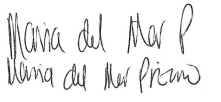 Maria del Mar P
Maria del Mar Prizmo